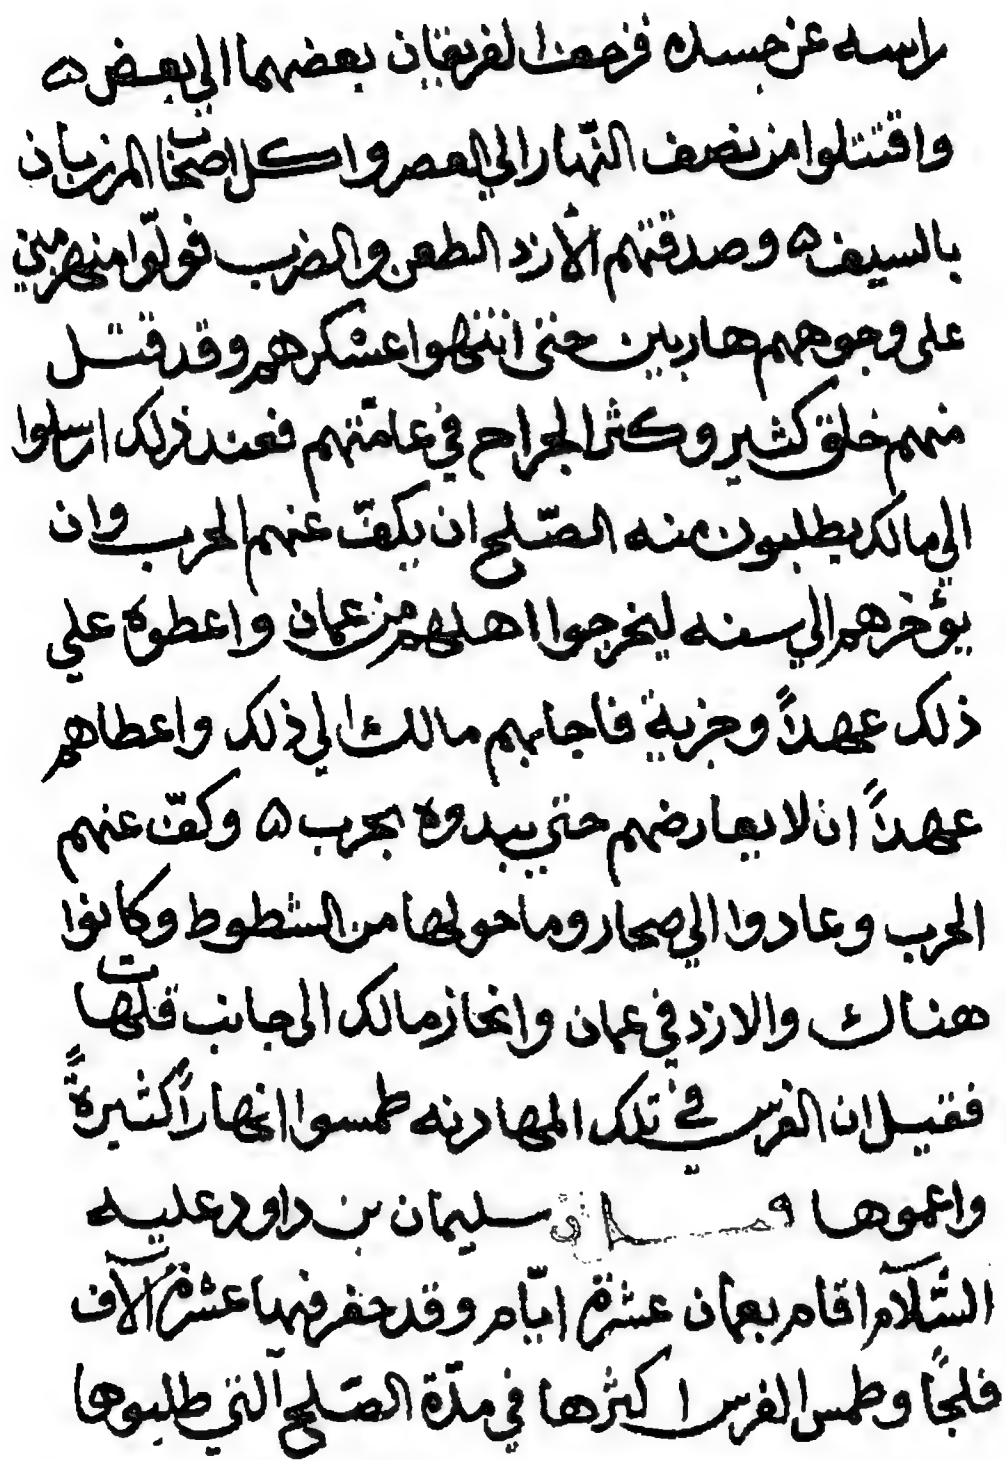 راسه عن جسده فرجعذا لفريقان بعضهما الي بعض ه
واقتتلوا من نصف النّهار الي العصر واكل اصحاب المرزبان
بالسيف ه وصدقتهم الأزد الطعن والضرب فولّوا منهزمين
على وجوههم هاربين حتى انتهوا عسكرهم وقد قتل
منهم خلق كثير وكثر الجراح في عامّتهم فعند ذلك ارسلوا
الي مالك يطلبون منه الصّلح ان يكفّ عنهم الحرب وان
يؤخرهم الي سنه ليخرجوا اهلهم من عمان واعطوه علي
ذلك عهداً وجزية فاجابهم مالك الي ذلك واعطاهم
عهداً ان لا يعارضهم حتي يبدوه بحرب ه وكفّ عنهم
الحرب وعادوا الي صحار وما حولها من الشطوط وكانوا
هناك والازد في عمان وانحاز مالك الى جانب قلهات
فقيل ان الفرس في تلك المهادنه طمسوا انهاراً كثيرةً
واعموها سليمان بن داود عليه
السّلام اقام بعمان عشرة ايّام وقد حفر فيها عشرة آلاف
فلجاً وطمس الفرس اكثرها في مدّة الصّلح التي طلبوها